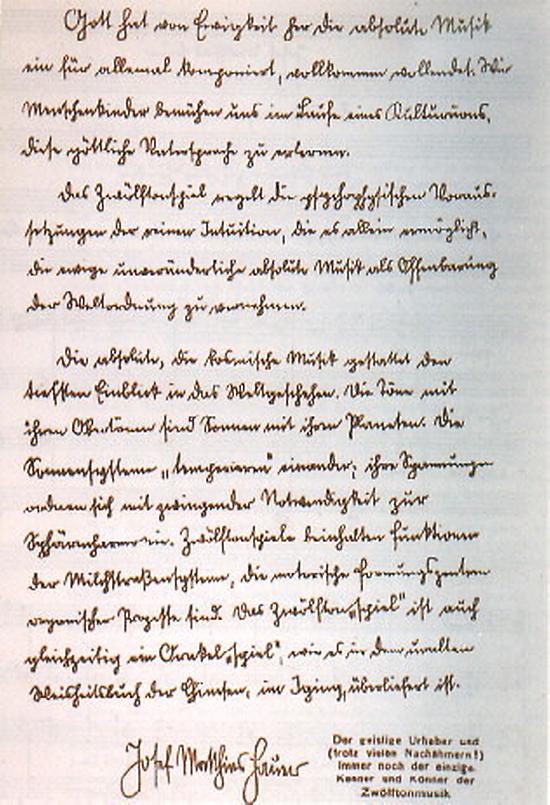 Gott hat von Ewigkeit her die absolute Musik
ein für allemal komponiert, vollkommen vollendet. Wir
Menschenkinder bemühen uns im Laufe eines Kulturäons,
diese göttliche Vatersprache zu erlernen.
Das Zwölftonspiel regelt die psychophysischen Voraus-
setzungen der reinen Intuition, die es allein ermöglicht,
die ewige unveränderliche absolute Musik als Offenbarung
der Weltordnung zu vernehmen.
Die absolute, die kosmische Musik gestattet den
tiefsten Einblick in das Weltgeschehen. Die Töne mit
ihren Obertönen sind Sonnen mit ihren Planeten. Die
Sonnensysteme „temperieren" einander; ihre Spannungen
ordnen sich mit zwingender Notwendigkeit zur
Sphärenharmonie. Zwölftonspiele beinhalten Funktionen
der Milchstraßensysteme, die motorische Formungszentren
organischer Prozesse sind. Das Zwölfton„spiel" ist auch
gleichzeitig ein Orakel„spiel", wie es in dem uralten
Weisheitsbuch der Chinesen, im Iging, überliefert ist.
Josef Matthias Hauer
Der geistige Urheber und
(trotz vielen Nachahmern!)
immer noch der einzige
Kenner und Könner der
Zwölftonmusik